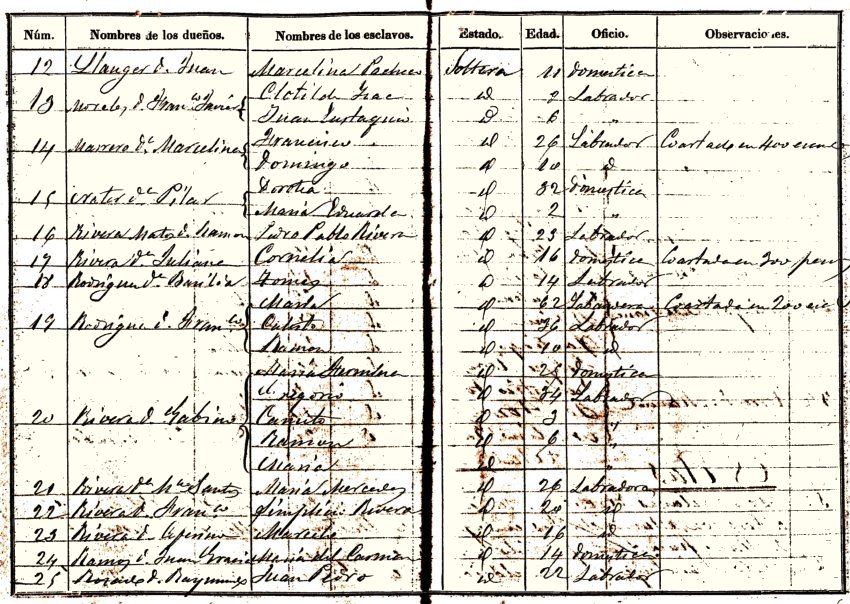 Núm. Nombres de los dueños. Nombres de los esclavos. Estado. Edad. Oficio. Observaciones.
12 Llauger d. Juan Marcelina Pacheco Soltera 11 domestica
13 Morales, d. Franco Javier Clotilde Isac id 8 Labrador
Juan Eustaquio id 6 "
14 Marrero da Marcelina Francisco id 26 Labrador Coartado en 400
Domingo id 10 id
15 da Pilar Dorotea id 32 domestica
Maria Eduarda id 2 "
16 Rivera Matos d. Ramon Pablo Rivera id 23 Labrador
17 Rivera da Juliana Cornelia id 16 domestica Coartada en 300 pesos
18 Rodriguez da Basilia Tomás id 14 Labrador
Maria id 62 Coartada en 200
19 Rodriguez d. Franco Calisto id 36 Labrador
Ramon id 10 id
Maria id 25 domestica
Gregorio id 34 Labrador
20 Rivera d. Gabino Canuto id 3 "
Ramon id 6 "
Maria id "
21 Rivera da Ma Santos Maria Mercedes id 26 Labradora
22 Rivera d. Franco Simplicia Rivera id 20 id
23 Rivera d. Marcelo id 16 id
24 Ramos d. Juan Gracia Maria del Carmen id 14 domestica
25 Rosado d. Raymundo Juan Pedro id 22 Labrador